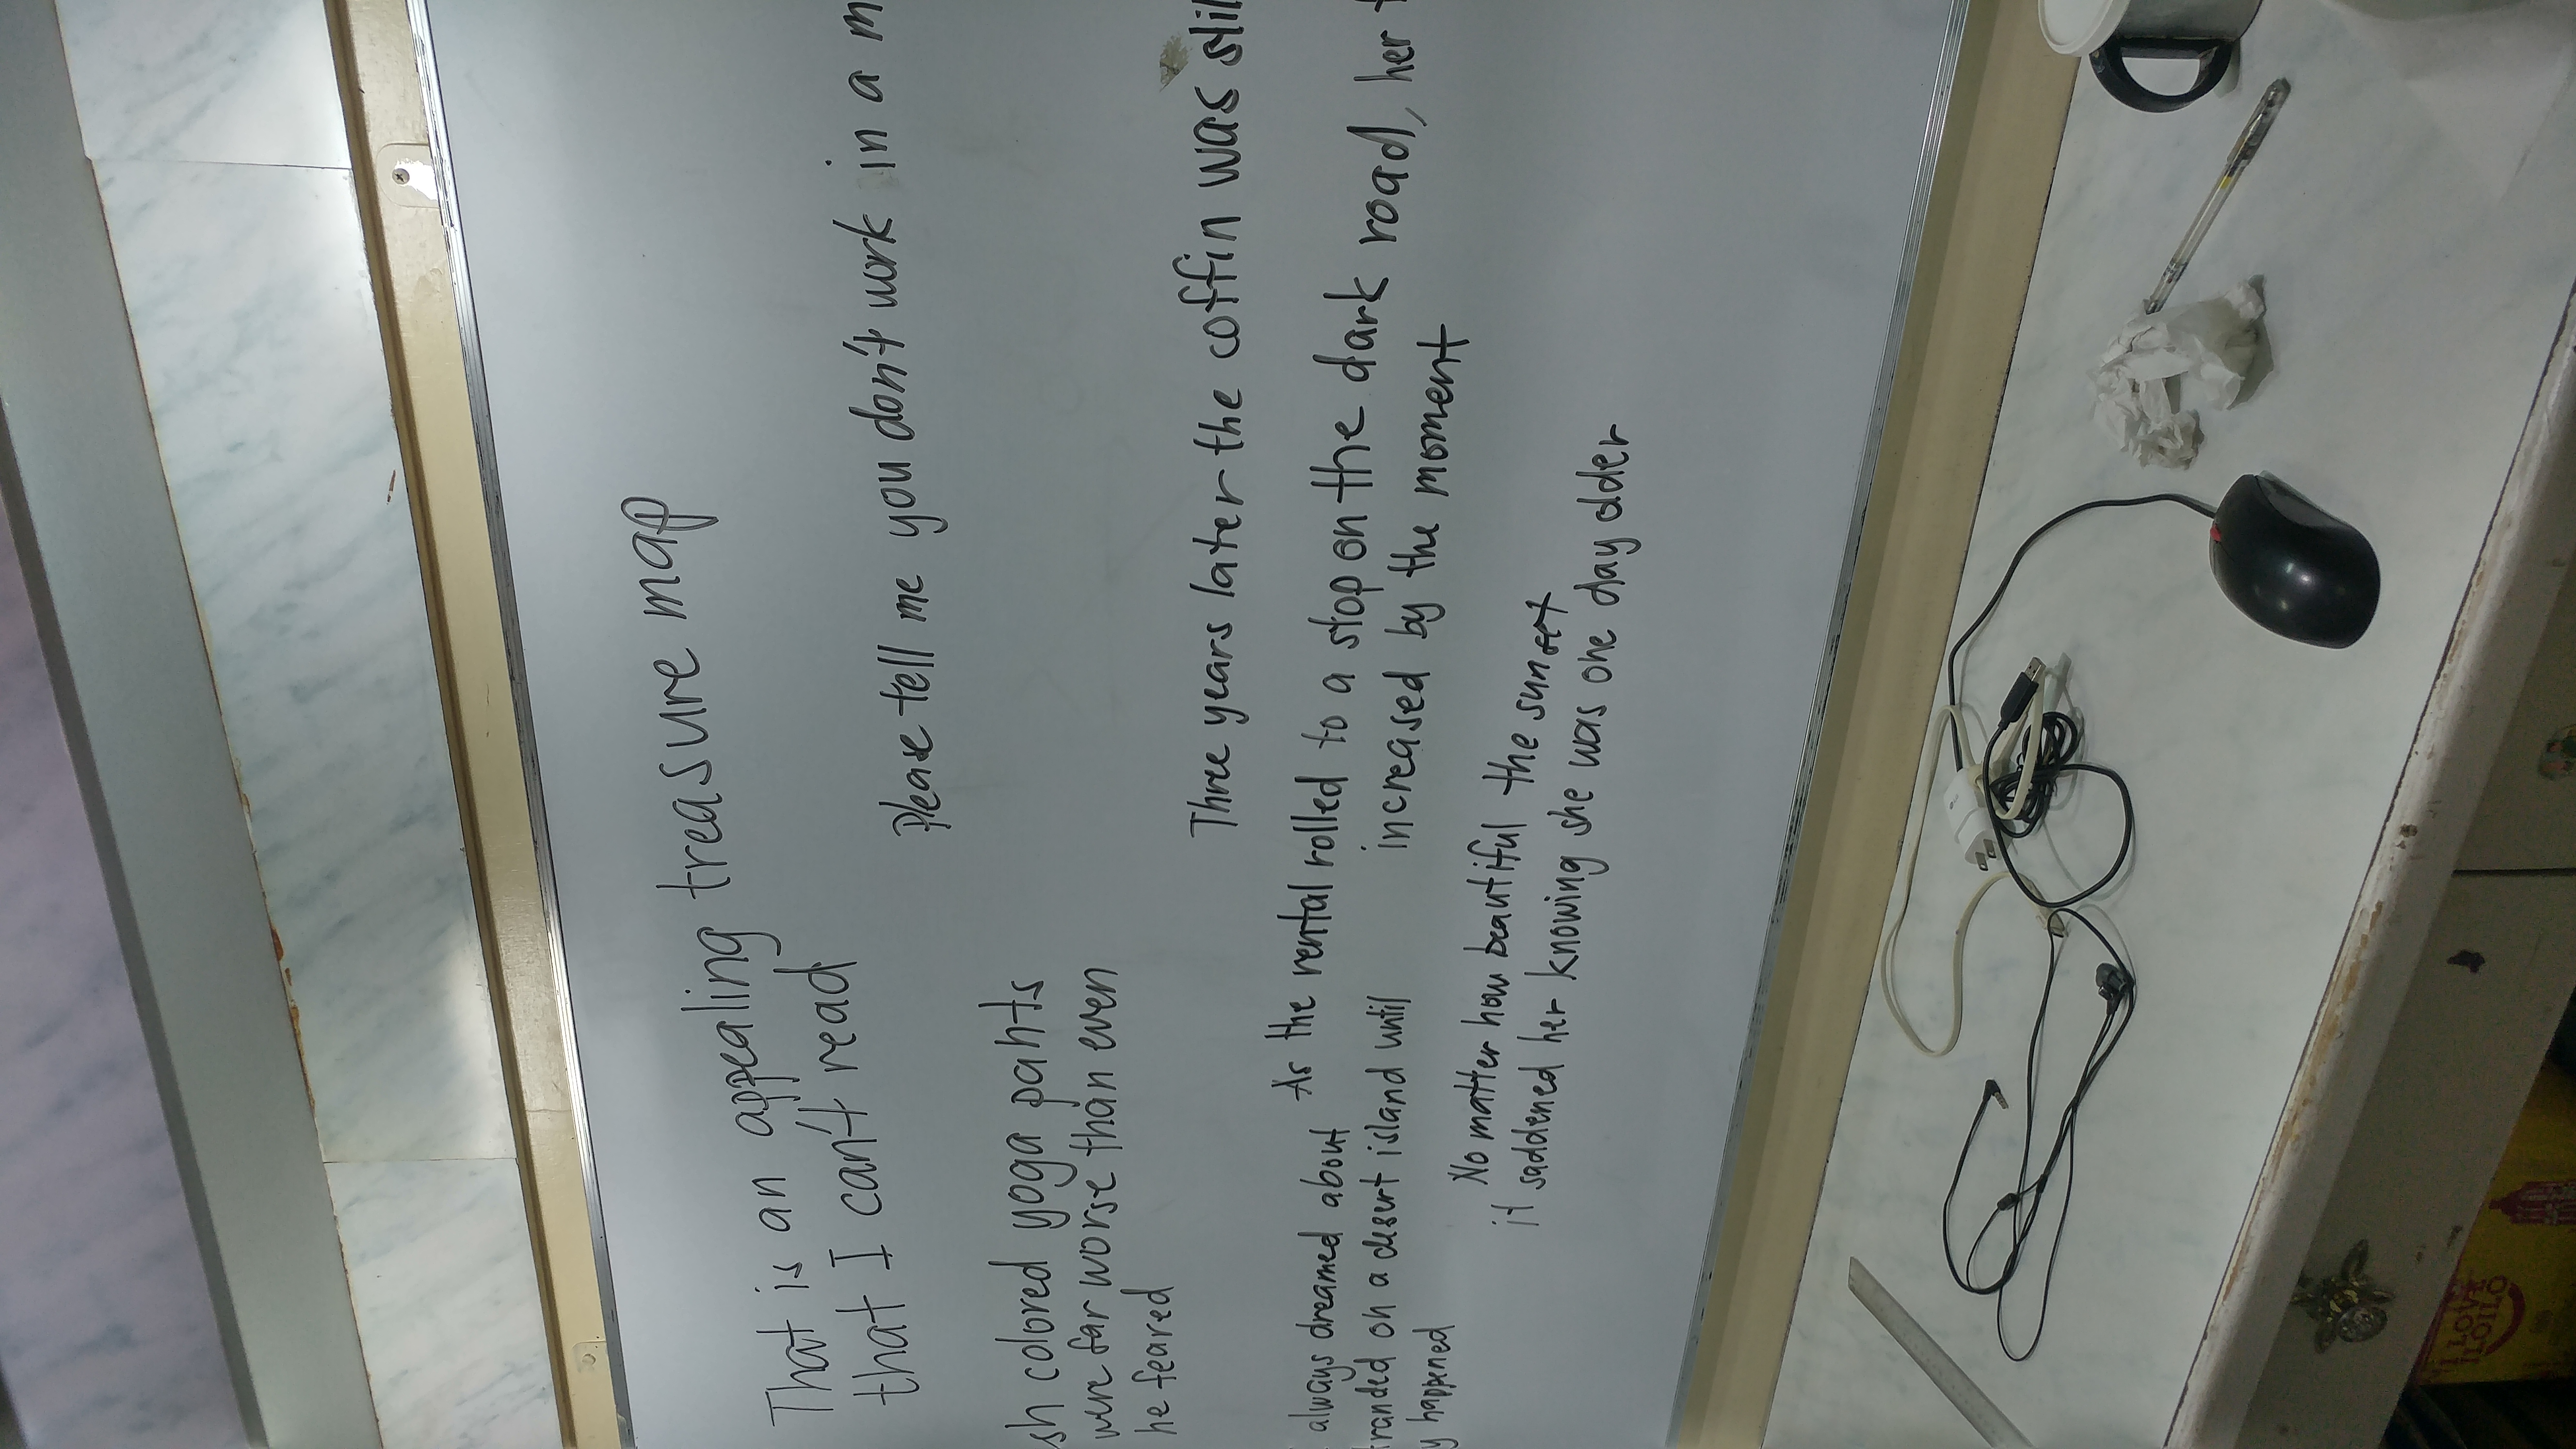 That is an appealing treasure map
that I can't read
Please tell me you don't work in a m
sh colored yoga pants
were far worse than even
he feared
Three years later the coffin was stil
always dreamed about
tranded on a desert island until
y happened
As the rental rolled to a stop on the dark road, her
increased by the moment
No matter how beautiful the sunset
it saddened her knowing she was one day older
I LOVE
ILOILO